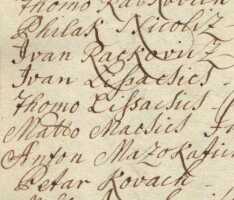 Thomo
Philak Nicoliz
Ivan Rackoviz
Ivan Lissacsics -
Thomo Lissacsics -
Matto Macsics
Anton Mazokatics
Petar Kovach -